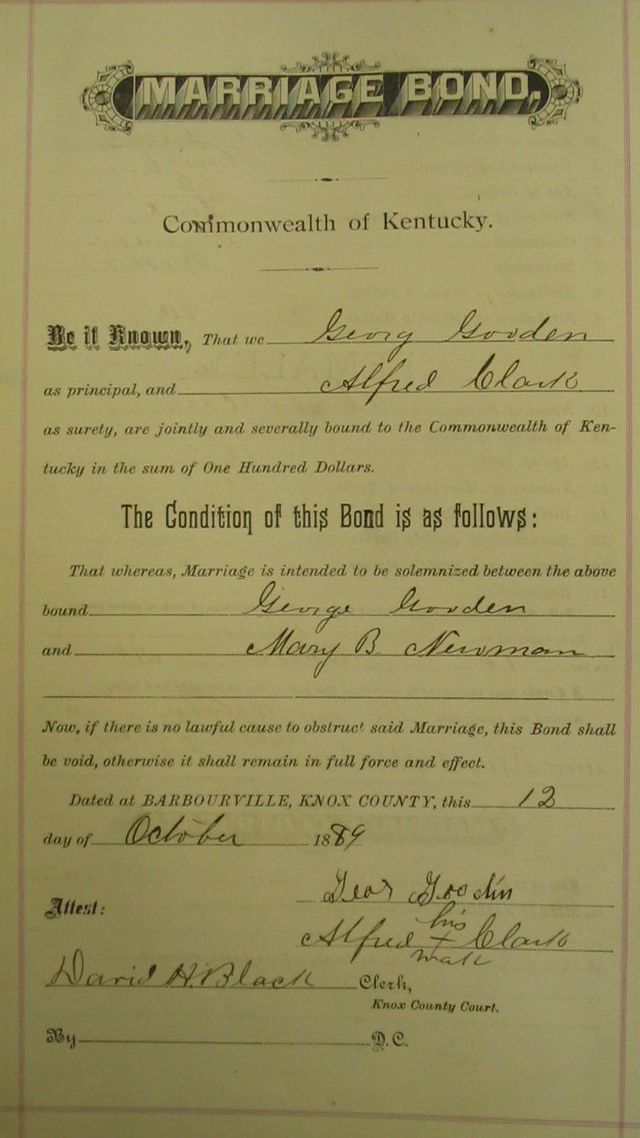 MARRIAGE BOND,
Commonwealth of Kentucky.
Be it Known, That we Georg Gooden
as principal, and Alfred Clark
as surety, are jointly and severally bound to the Commonwealth of Ken-
tucky in the sum of One Hundred Dollars.
The Condition of this Bond is as follows:
That whereas, Marriage is intended to be solemnized between the above
bound George Gooden
and Mary B. Newman
Now, if there is no lawful cause to obstruct said Marriage, this Bond shall
be void, otherwise it shall remain in full force and effect.
Dated at BARBOURVILLE, KNOX COUNTY, this 12
day of October 1889
Geor Goodin
Attest:
his
Alfred x Clark
mark
David H. Black Clerk,
Knox County Court.
By D.C.